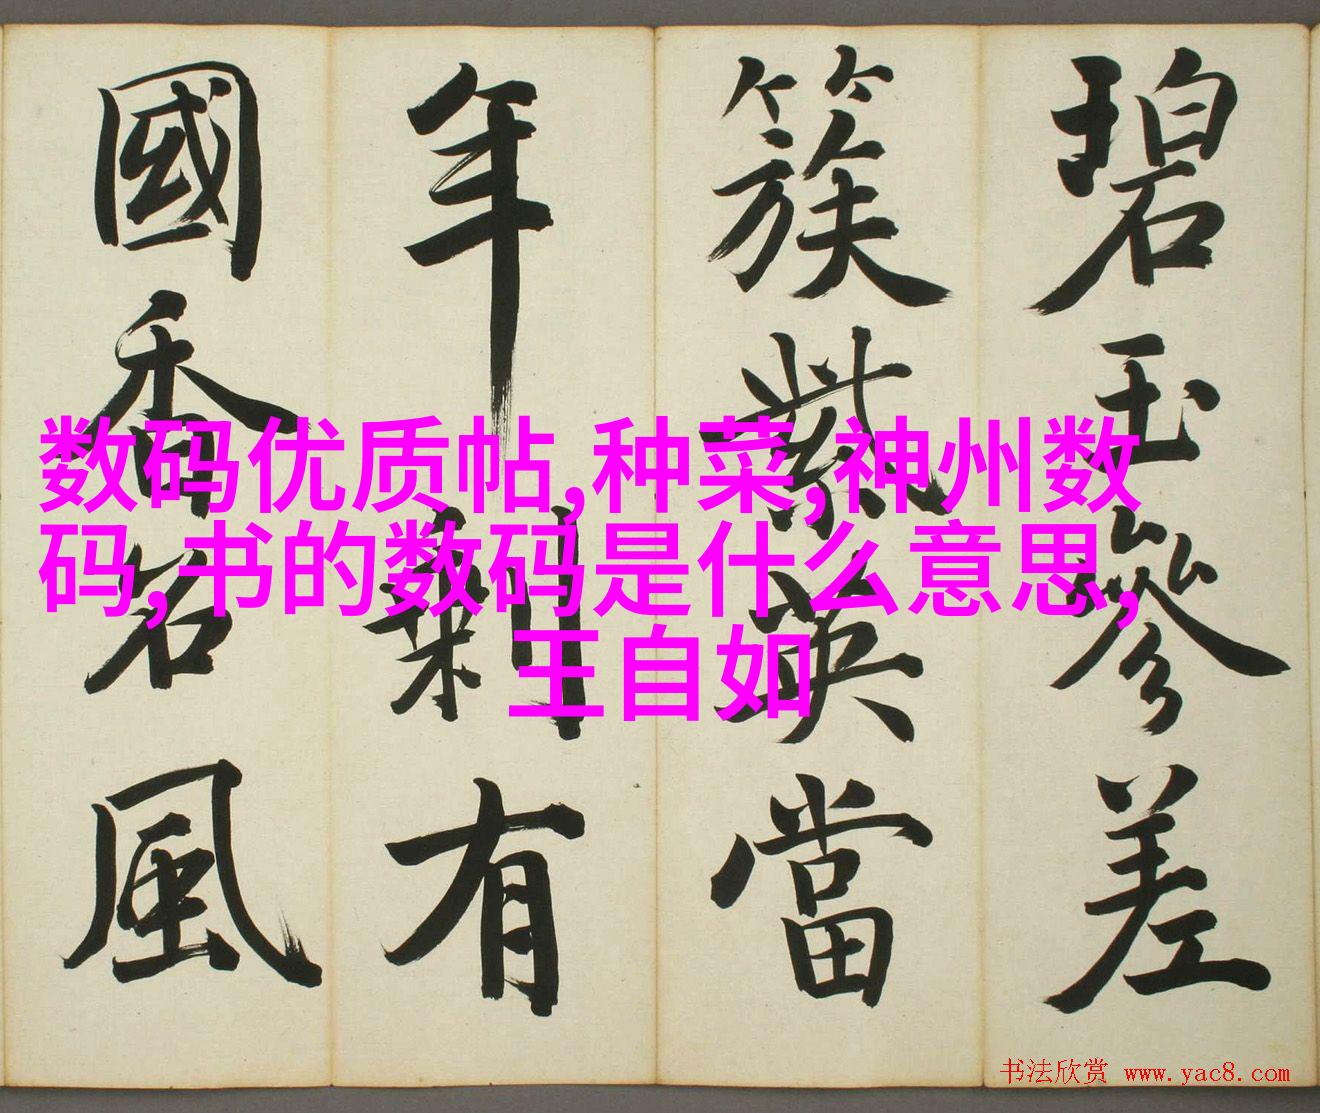 碧玉參差
簇紫英當
年剩有
國香名風
数码优质帖,种菜,神州数
码,书的数码是什么意思,
王自如
书法欣赏 www.yac8.com